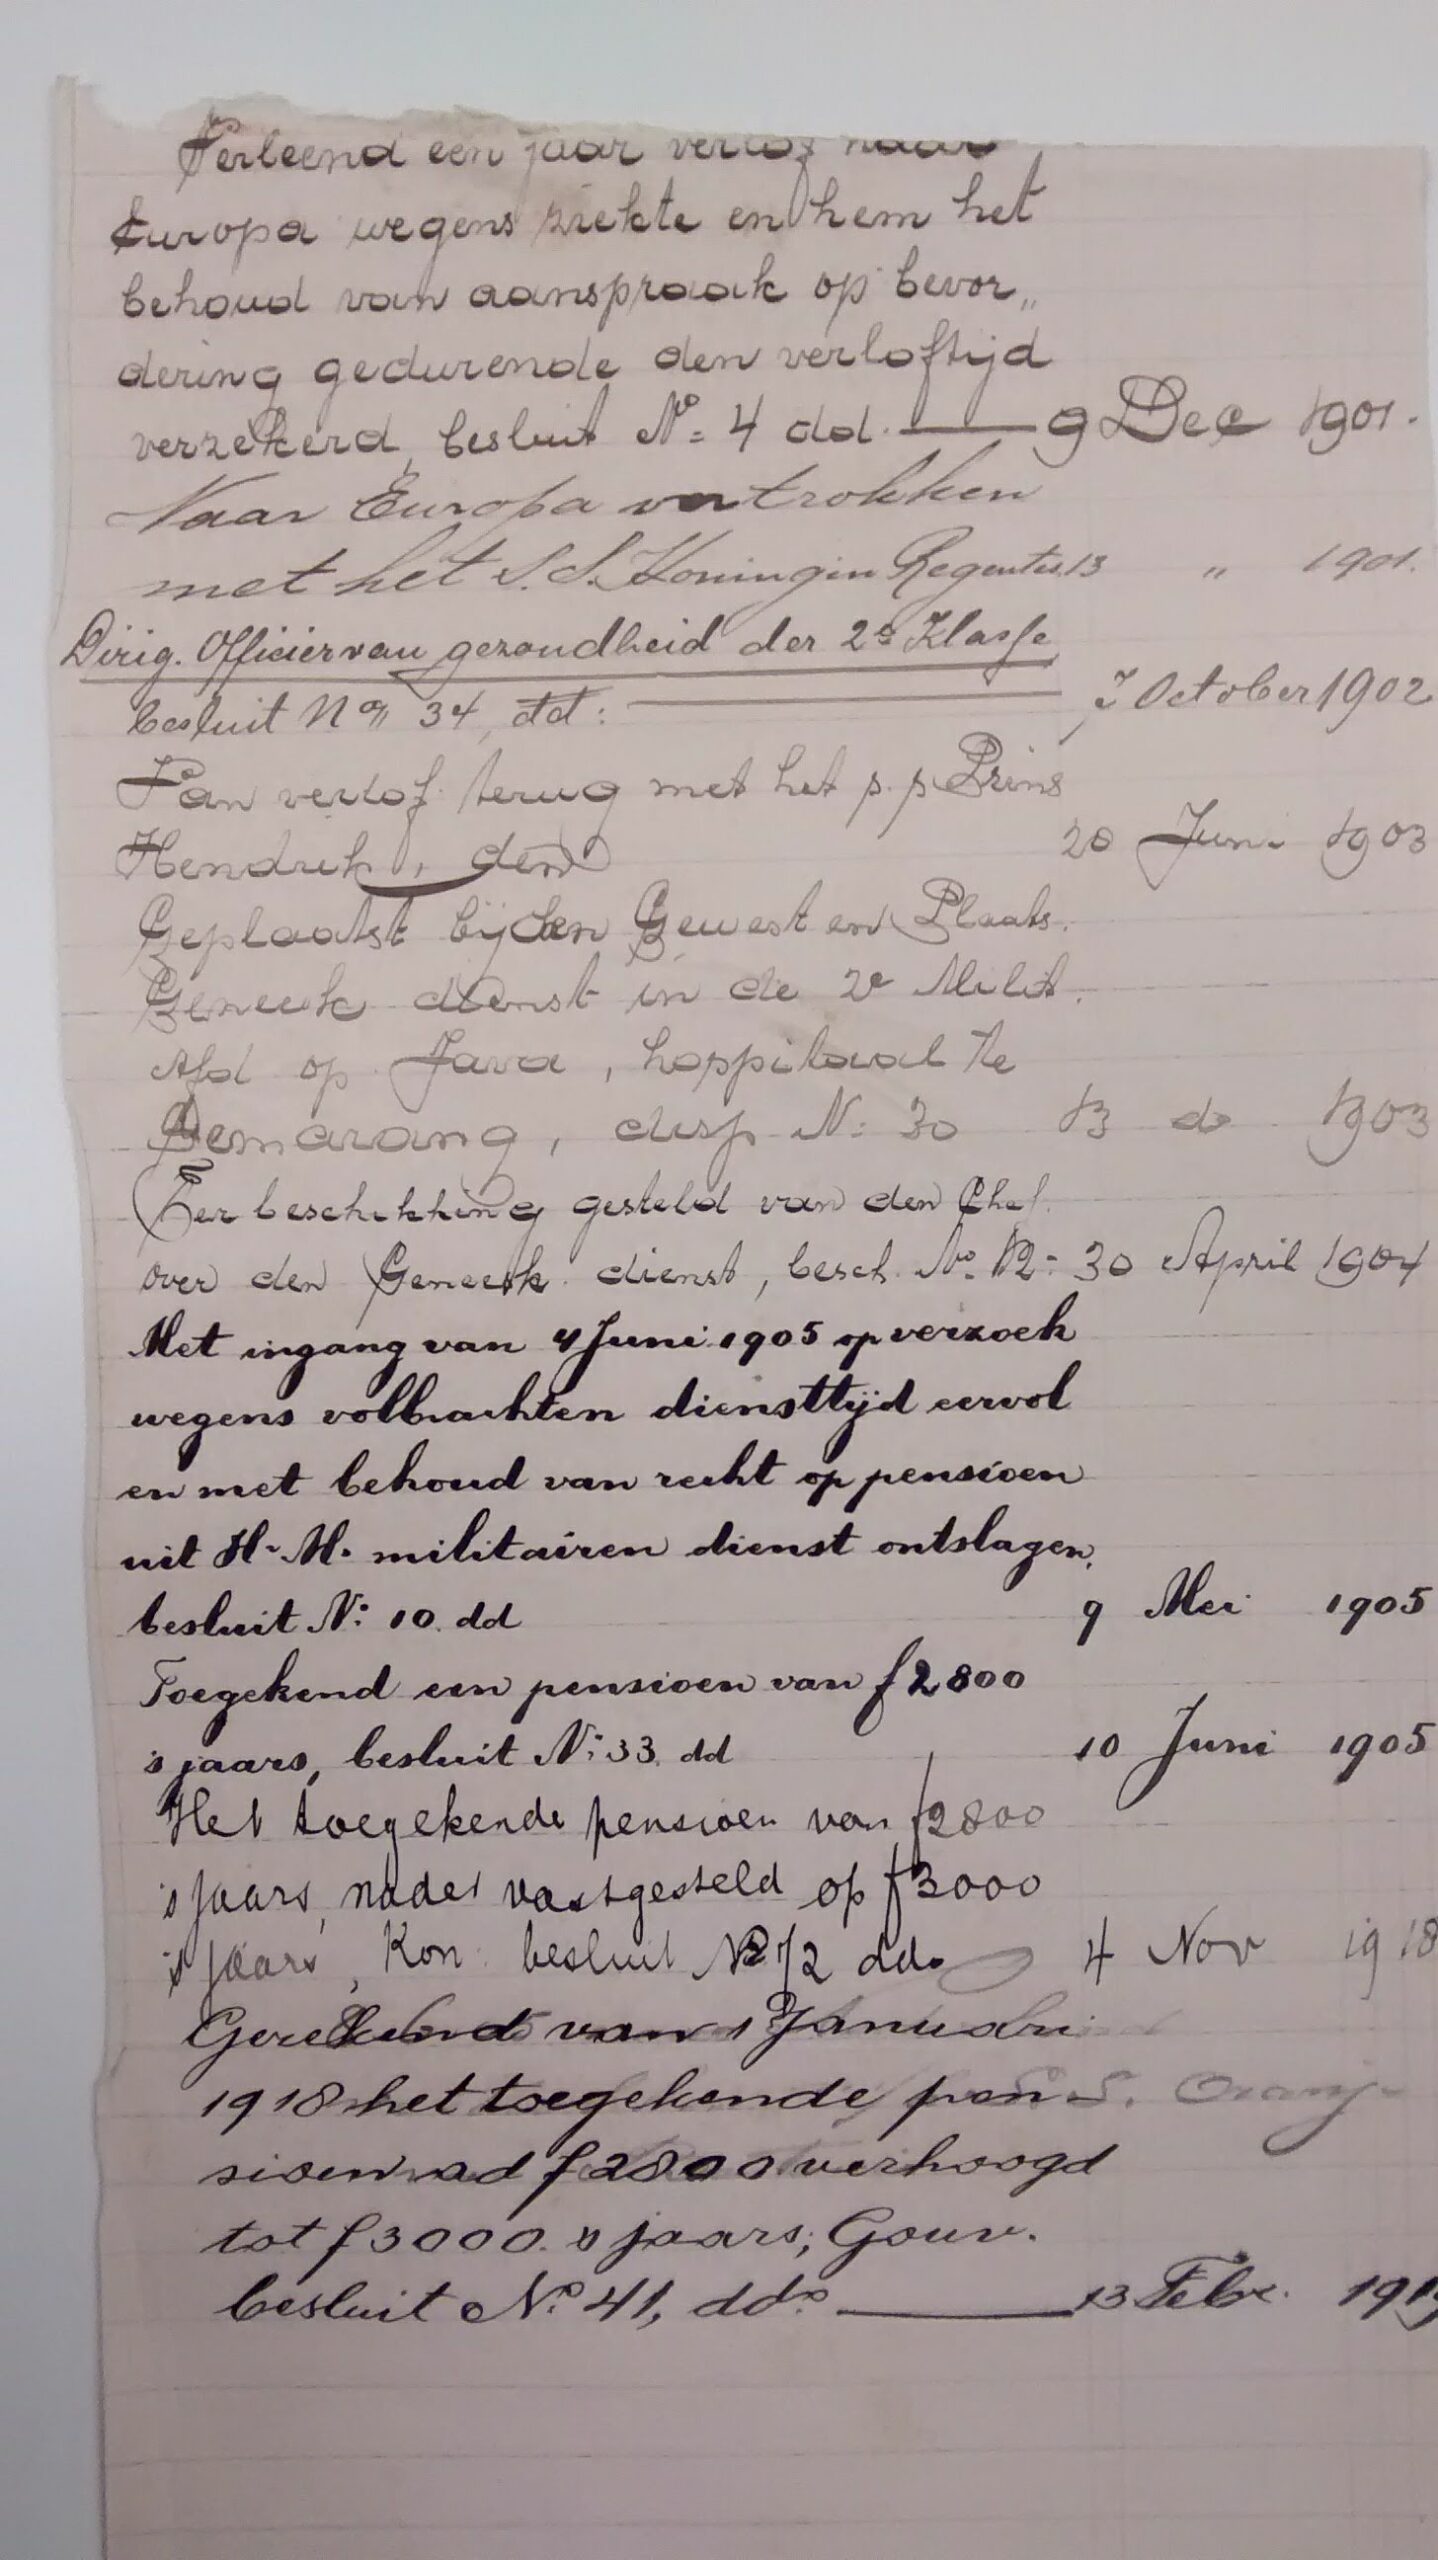 Verleend een jaar verlof naar
Europa wegens ziekte en hem het
behoud van aanspraak op bevor„
dering gedurende den verloftijd
verzekerd, besluit No. 4 dd. 9 Dec 1901.
Naar Europa vertrokken
met het S.S. Koningin Regentes 13 " 1901.
Dirig. Officier van gezondheid der 2e Klasse
besluit No. 34, dd: October 1902
Van verlof terug met het s.s. Prins
Hendrik, den 20 Juni 1903
Geplaatst bij den Gewest en Plaats.
Geneesk dienst in de 2e Milit.
Afd op Java, hospitaal te
Semarang, disp No. 30 13 do 1903
Ter beschikking gesteld van den Chef
over den Geneesk. dienst, besch. No. 12: 30 April 1904
Met ingang van 4 Juni 1905 op verzoek
wegens volbrachten diensttijd eervol
en met behoud van recht op pensioen
uit H. M. militairen dienst ontslagen,
besluit No. 10 dd 9 Mei 1905
Toegekend een pensioen van f 2800
's jaars, besluit No. 33 dd 10 Juni 1905
Het toegekende pensioen van f 2800
's jaars, nader vastgesteld op f 3000
's jaars, Kon. besluit No 72 ddo 4 Nov 1918
Gerekend van 1 Januari
1918 het toegekende pen
sioen ad f 2800 verhoogd
tot f 3000 's jaars; Gouv.
besluit No. 41, ddo. 13 Febr. 1919